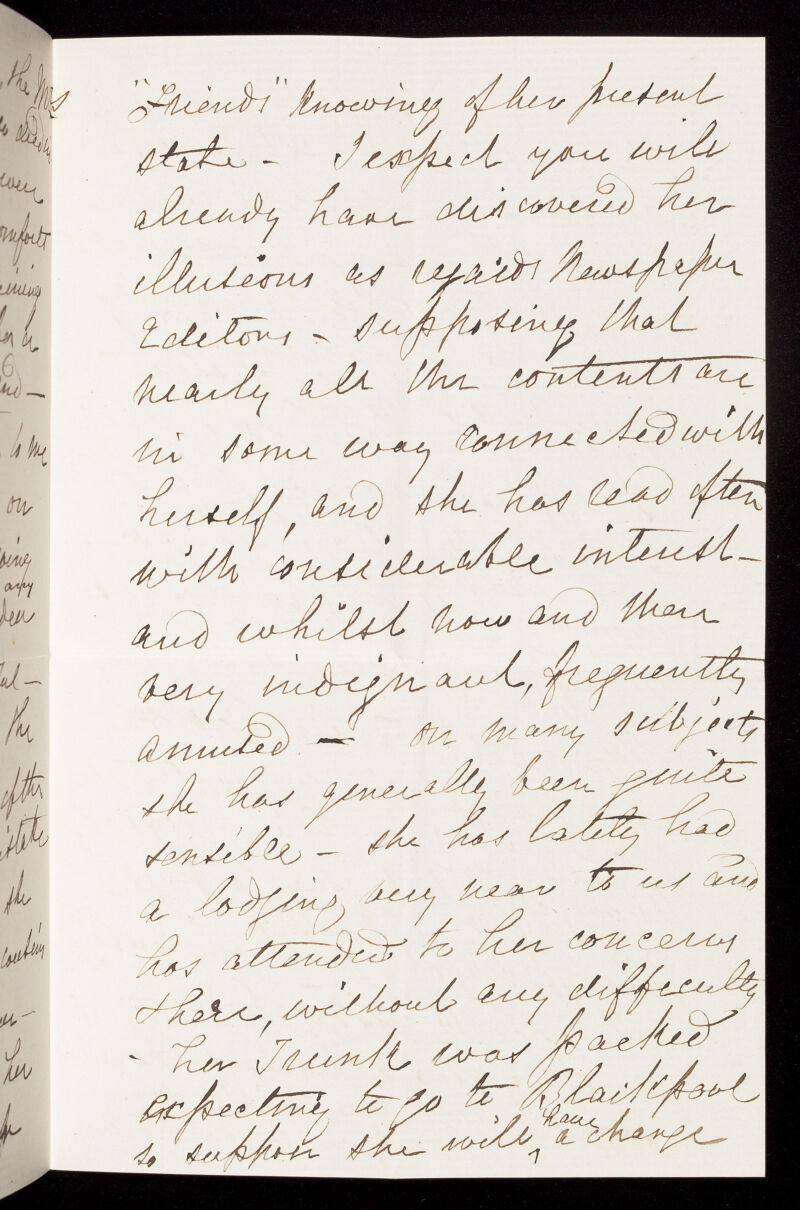 "Friends" knowing of her present
state - I expect you will
already have discovered her
illusions as regards Newspaper
Editors - supposing that
nearly all the contents are
in some way connected with
herself, and she has read often
with considerable interest -
and whilst now and then
very indignant, frequently
amused - on many subjects
she has generally been quite
sensible - she has lately had
a lodging very near to us and
has attended to her concerns
there, without any difficulty
- her Trunk was packed
expecting to go to Blackpool
so suppose she will have a change